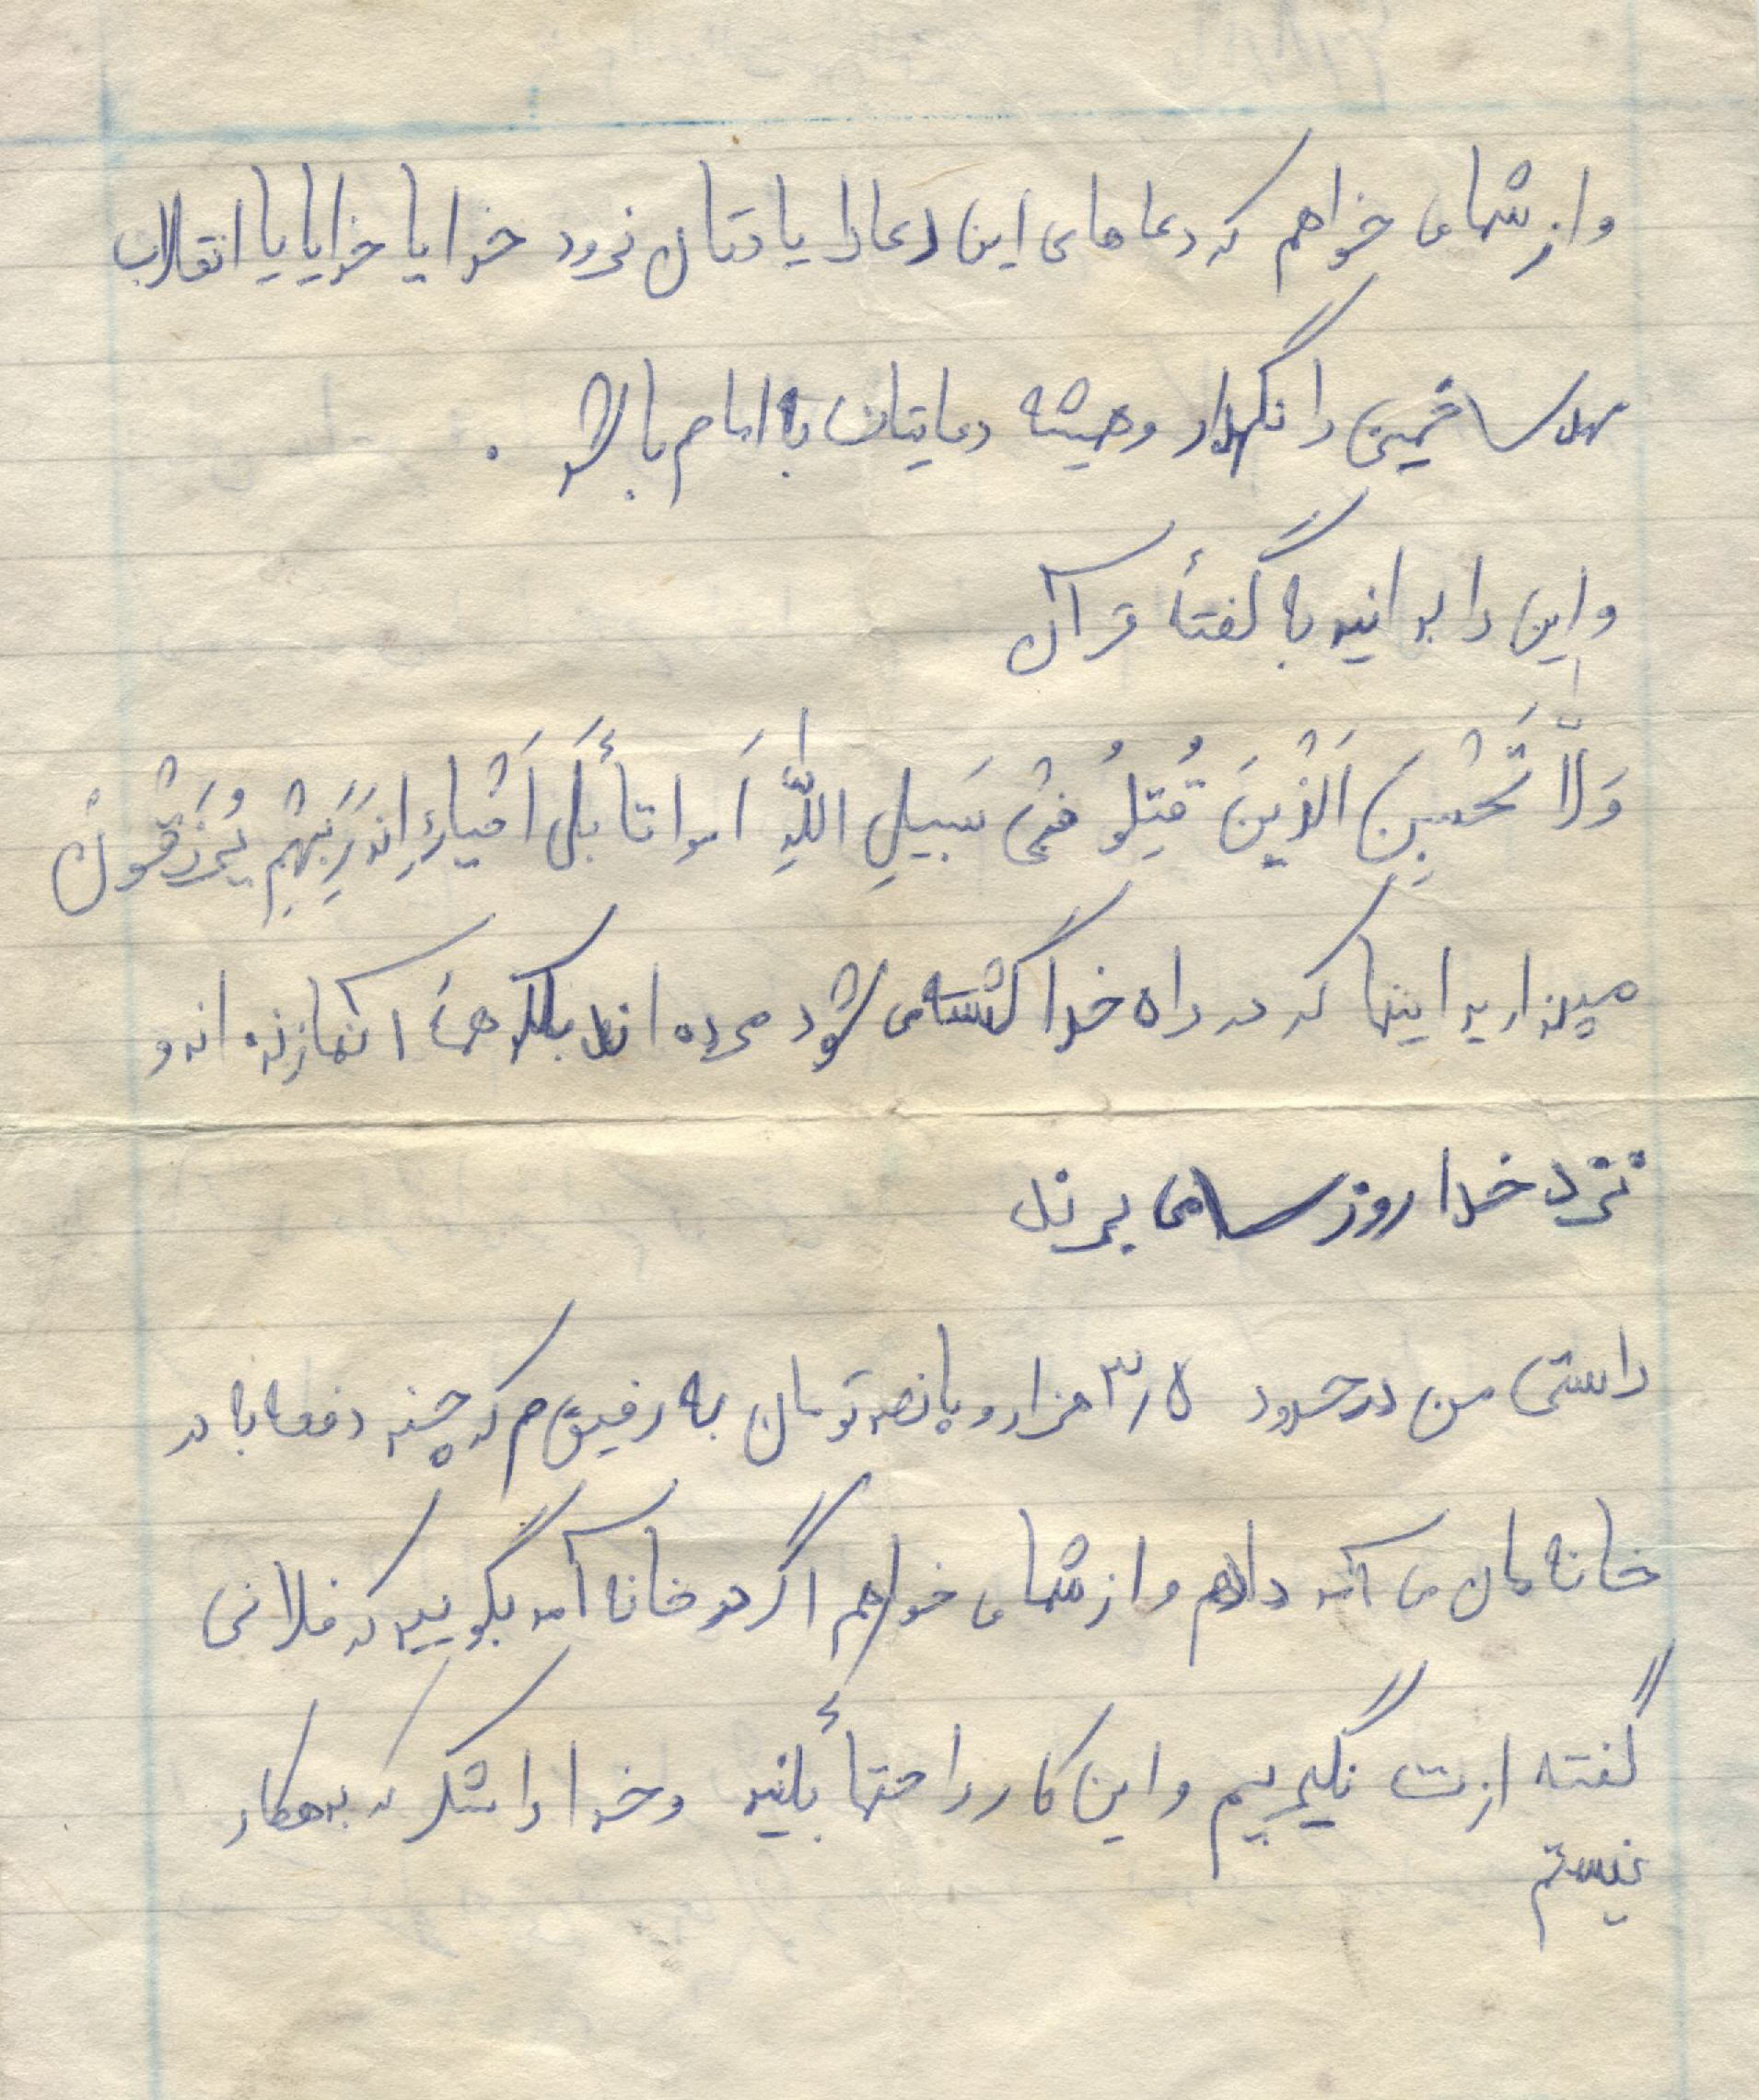 و از شما می خواهم که دعا های این دعا را یادتان نرود خدایا خدایا یا انقلاب
خمینی را نگهدار و همیشه دعایتان به امام باشد .
و این را بدانید با گفتهٔ قرآن
وَلاّ تَحْسَبِن اَلَذْینَ قُتِلُوُ فیْ سَبیلِ اللّهِ اَمواتاً بَلَ اَحْیاءِ اِندَ رَبِهِمْ یُرْزَقُونْ
مپندارید اینها که در راه خدا کشته می شود مرده اند بلکه همهٔ آنها زنده اند و
نزد خدا روزی می برند
راستی من در حدود ۳٫۵ هزار و پانصد تومان به رفیق م که چند دفعه با در
خانه مان می آمد دادم و از شما می خواهم اگر در خانه آمد بگویید که فلانی
گفته ازت نگیریم و این کار را حتماً بکنید و خدا را شکر که بدهکار
نیستم